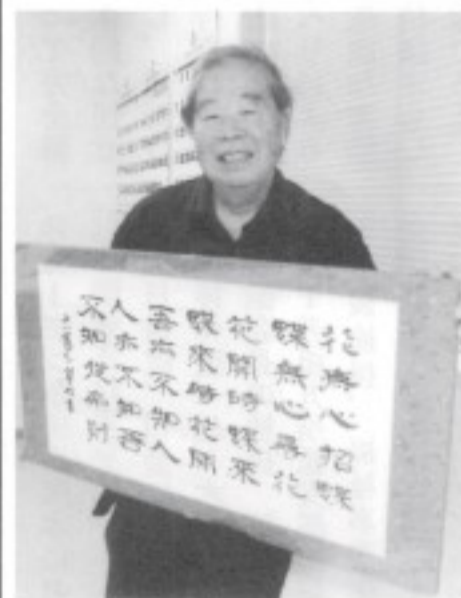 花無心招蝶
蝶無心尋花
花開時蝶來
蝶來時花開
吾亦不知人
人亦不知吾
不知從帝則